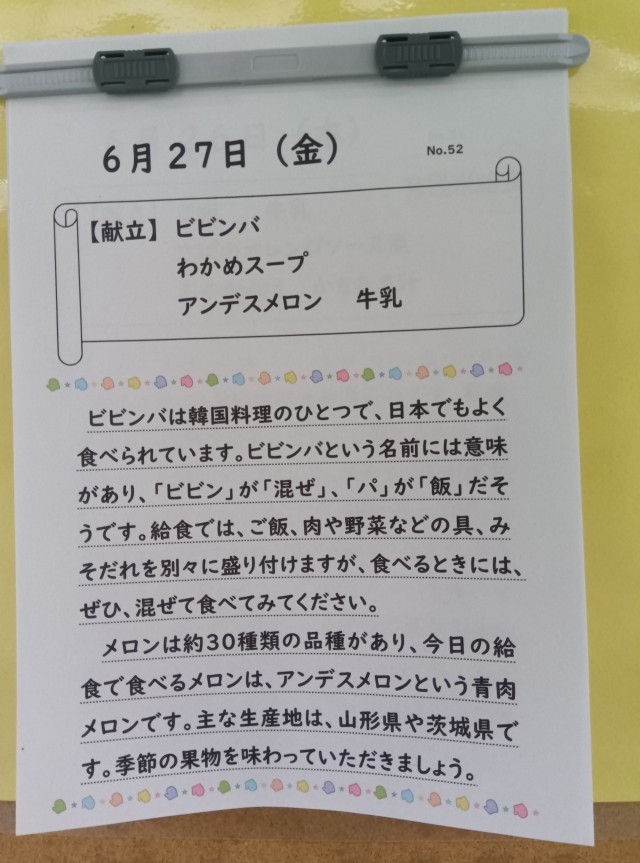 6月27日（金）
No.52
【献立】ビビンバ
わかめスープ
アンデスメロン 牛乳
ビビンバは韓国料理のひとつで、日本でもよく
食べられています。ビビンバという名前には意味
があり、「ビビン」が「混ぜ」、「パ」が「飯」だそ
うです。給食では、ご飯、肉や野菜などの具、み
そだれを別々に盛り付けますが、食べるときには、
ぜひ、混ぜて食べてみてください。
メロンは約30種類の品種があり、今日の給
食で食べるメロンは、アンデスメロンという青肉
メロンです。主な生産地は、山形県や茨城県で
す。季節の果物を味わっていただきましょう。